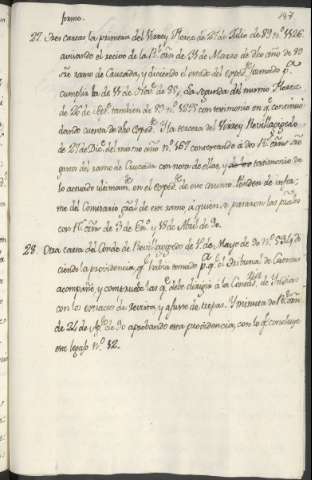 pramo. 147
27. Tres cartas la primera del Virrey Florez de 27 de Julio de 89 nº. 1426.
avisando el recivo de la Rl. orñ de 31 de Marzo de dho año de 89
sre ramo de Cruzada, y diciendo el estado del exped.te formado pª
cumplir la de 17 de Nov.e de 87. La segunda del mismo Florez
de 26 de Ag.to tambien de 89 nº. con testimonio en qe. continua
dando cuenta de dho exped.te Y la tercera del Virrey Revillagigedo
de 27 de Dic.e del mismo año nº. 167 contestando a dos Rs. orñs sre
gastos del ramo de Cruzada con nota de ellas, y testimonio de
lo actuado ultimam.te en el exped.te de ese asunto. Penden de infor-
me del Comisario gral de ese ramo, à quien se pasaron las
con Rs. orñs de 3 de Enº. y 18 de Abril de 90.
28. Otra carta del Conde de Revillagigedo de 1º. de Mayo de 90 nº. di
ciendo la providencia qe. habia tomado pª qe. el Tribunal de Cuentas
acompañe y contextuale las qe. debe dirigir a la Contad.ª de Yndias
con los extractos de revista y ajustes de tropas. Y minuta de Rl. orñ
de 24 de Ag.to de 90 aprobando esta providencia, con lo qe. concluye
este legajo nº. 12.